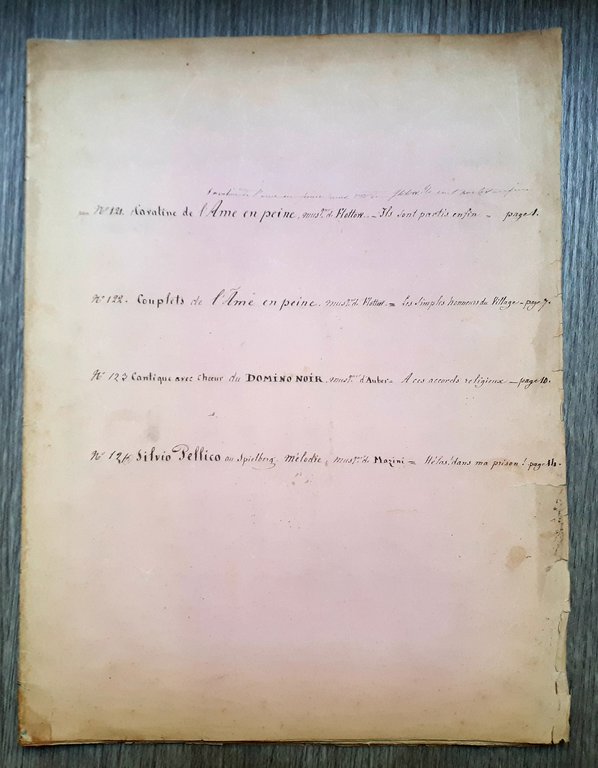 Cavatine de l'ame en peine
N° 121. Cavatine de l'Ame en peine, musi.que de Flottow. – Ils sont partis enfin – page 1.
N° 122. Couplets de l'Ame en peine. musi.que de Flottow. = Les simples honneurs du Village – page 7.
N° 123 Cantique avec chœur du DOMINO NOIR, musi.que d'Auber = A ces accords religieux – page 10.
N° 124 Silvio Pellico au Spielberg, mélodie, musi.que de Mazini = Hélas! dans ma prison! page 14.